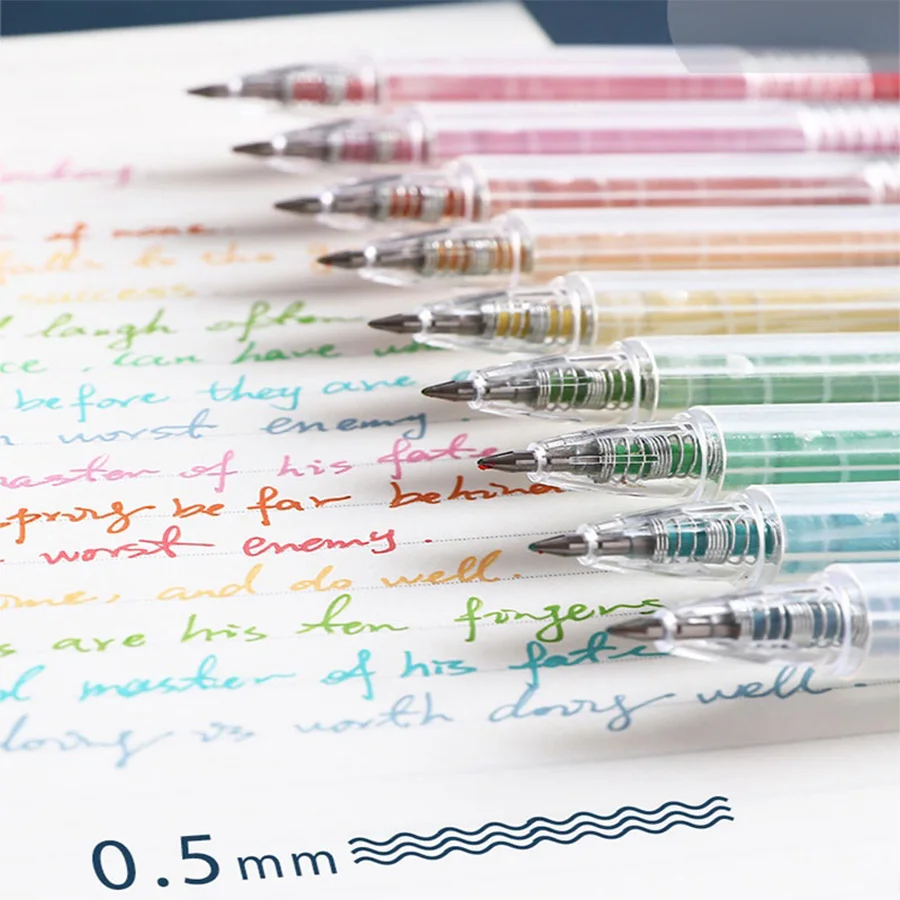 of none
falls to the
success.
laugh often
ce, can have
before they are
worst enemy.
master of his fate
spring be far behind
worst enemy.
ome, and do well.
s are his ten fingers
master of his fate
doing is worth doing well.
0.5mm